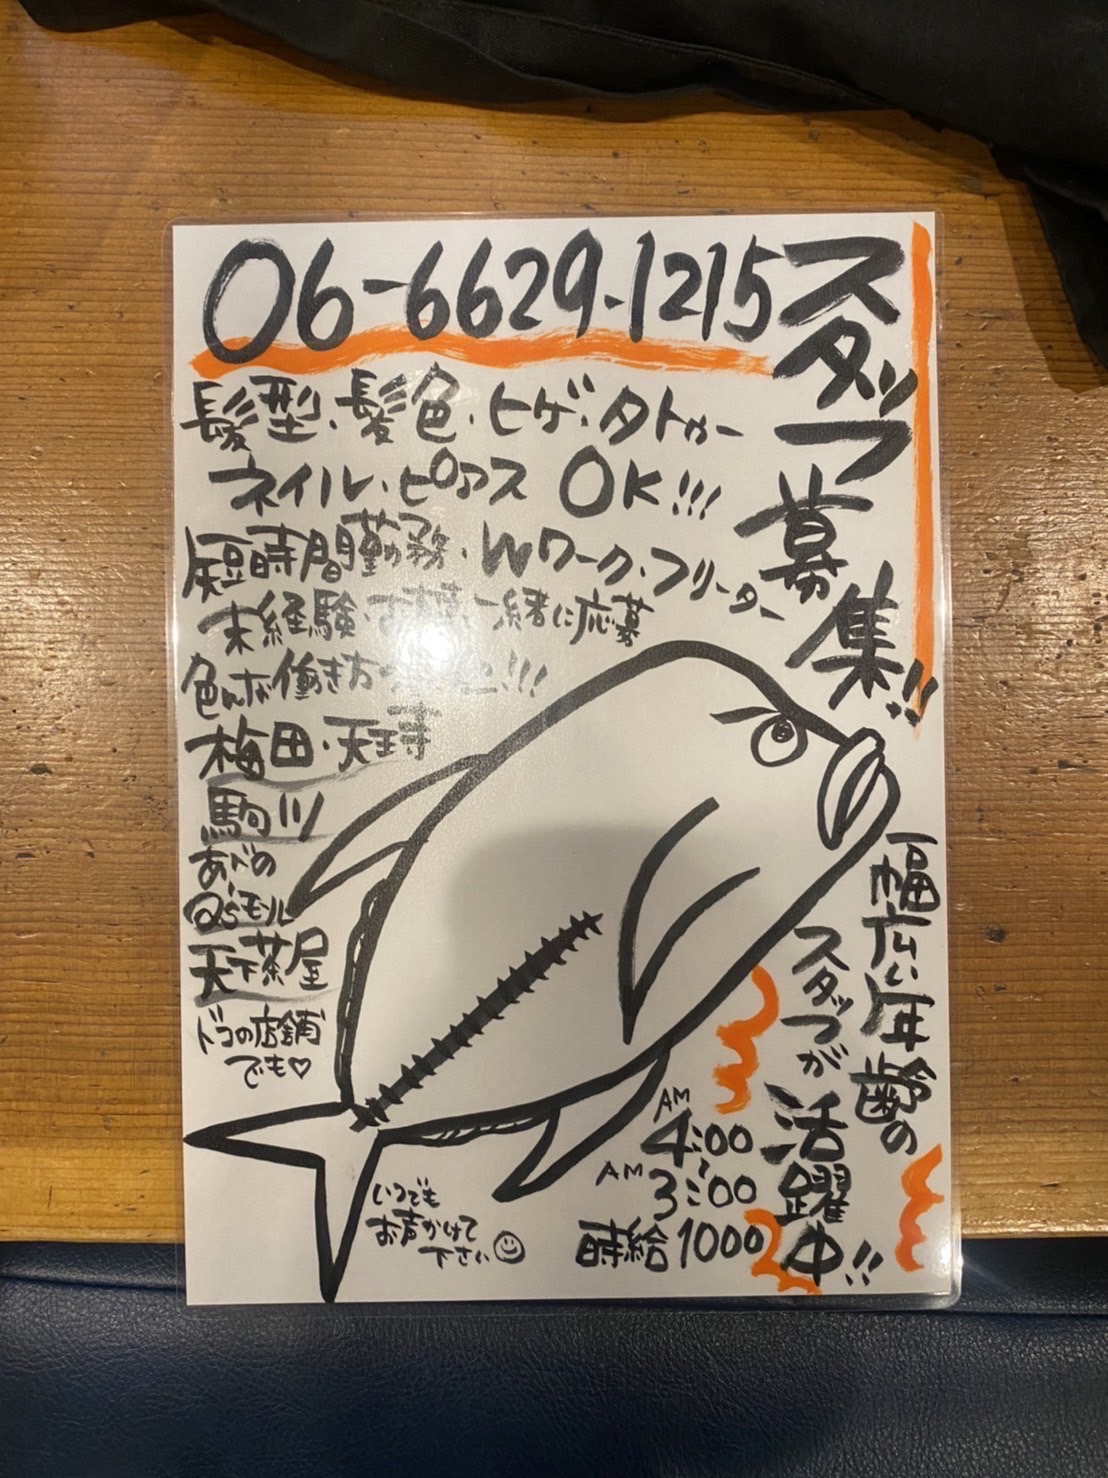 スタッフ募集!!
06-6629-1215
髪型、髪色・ヒゲ・タトゥー
ネイル・ピアス OK!!!
短時間勤務・Wワーク・フリーター
未経験・一緒に応募
色んな働き方!!!
梅田・天王寺
駒川
あべの
Q'sモール
天下茶屋
ドコの店舗
でも♡
幅広い年齢の
スタッフが
活躍中!!
AM
4:00
〜
AM
3:00
時給1000
いつでも
お声かけて
下さい☺